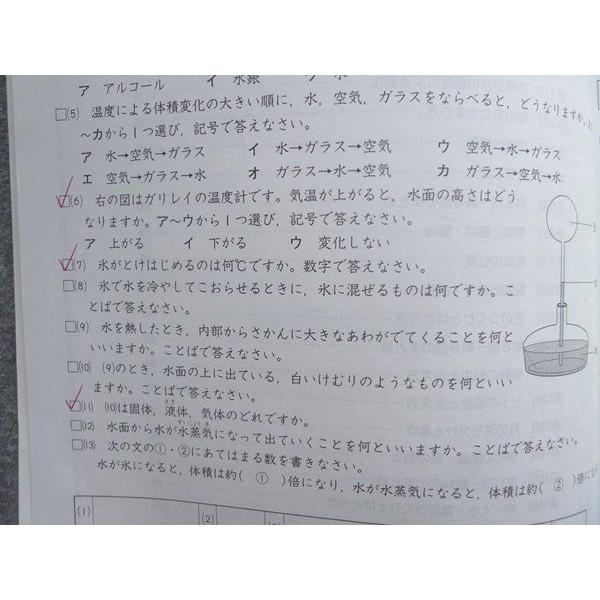 ア アルコール イ 水銀 ウ 水
□(5) 温度による体積変化の大きい順に，水，空気，ガラスをならべると，どうなりますか。ア
～カから1つ選び，記号で答えなさい。
ア 水→空気→ガラス イ 水→ガラス→空気 ウ 空気→水→ガラス
エ 空気→ガラス→水 オ ガラス→水→空気 カ ガラス→空気→水
□(6) 右の図はガリレイの温度計です。気温が上がると，水面の高さはどう
なりますか。ア～ウから1つ選び，記号で答えなさい。
ア 上がる イ 下がる ウ 変化しない
□(7) 氷がとけはじめるのは何℃ですか。数字で答えなさい。
□(8) 氷で水を冷やしてこおらせるときに，氷に混ぜるものは何ですか。こ
とばで答えなさい。
□(9) 水を熱したとき，内部からさかんに大きなあわがでてくることを何と
いいますか。ことばで答えなさい。
□(10) (9)のとき，水面の上に出ている，白いけむりのようなものを何といい
ますか。ことばで答えなさい。
□(11) (10)は固体，液体，気体のどれですか。
□(12) 水面から水が水蒸気になって出ていくことを何といいますか。ことばで答えなさい。
□(13) 次の文の①・②にあてはまる数を書きなさい。
水が氷になると，体積は約( ① )倍になり，水が水蒸気になると，体積は約( ② )倍になり
(1) (2)